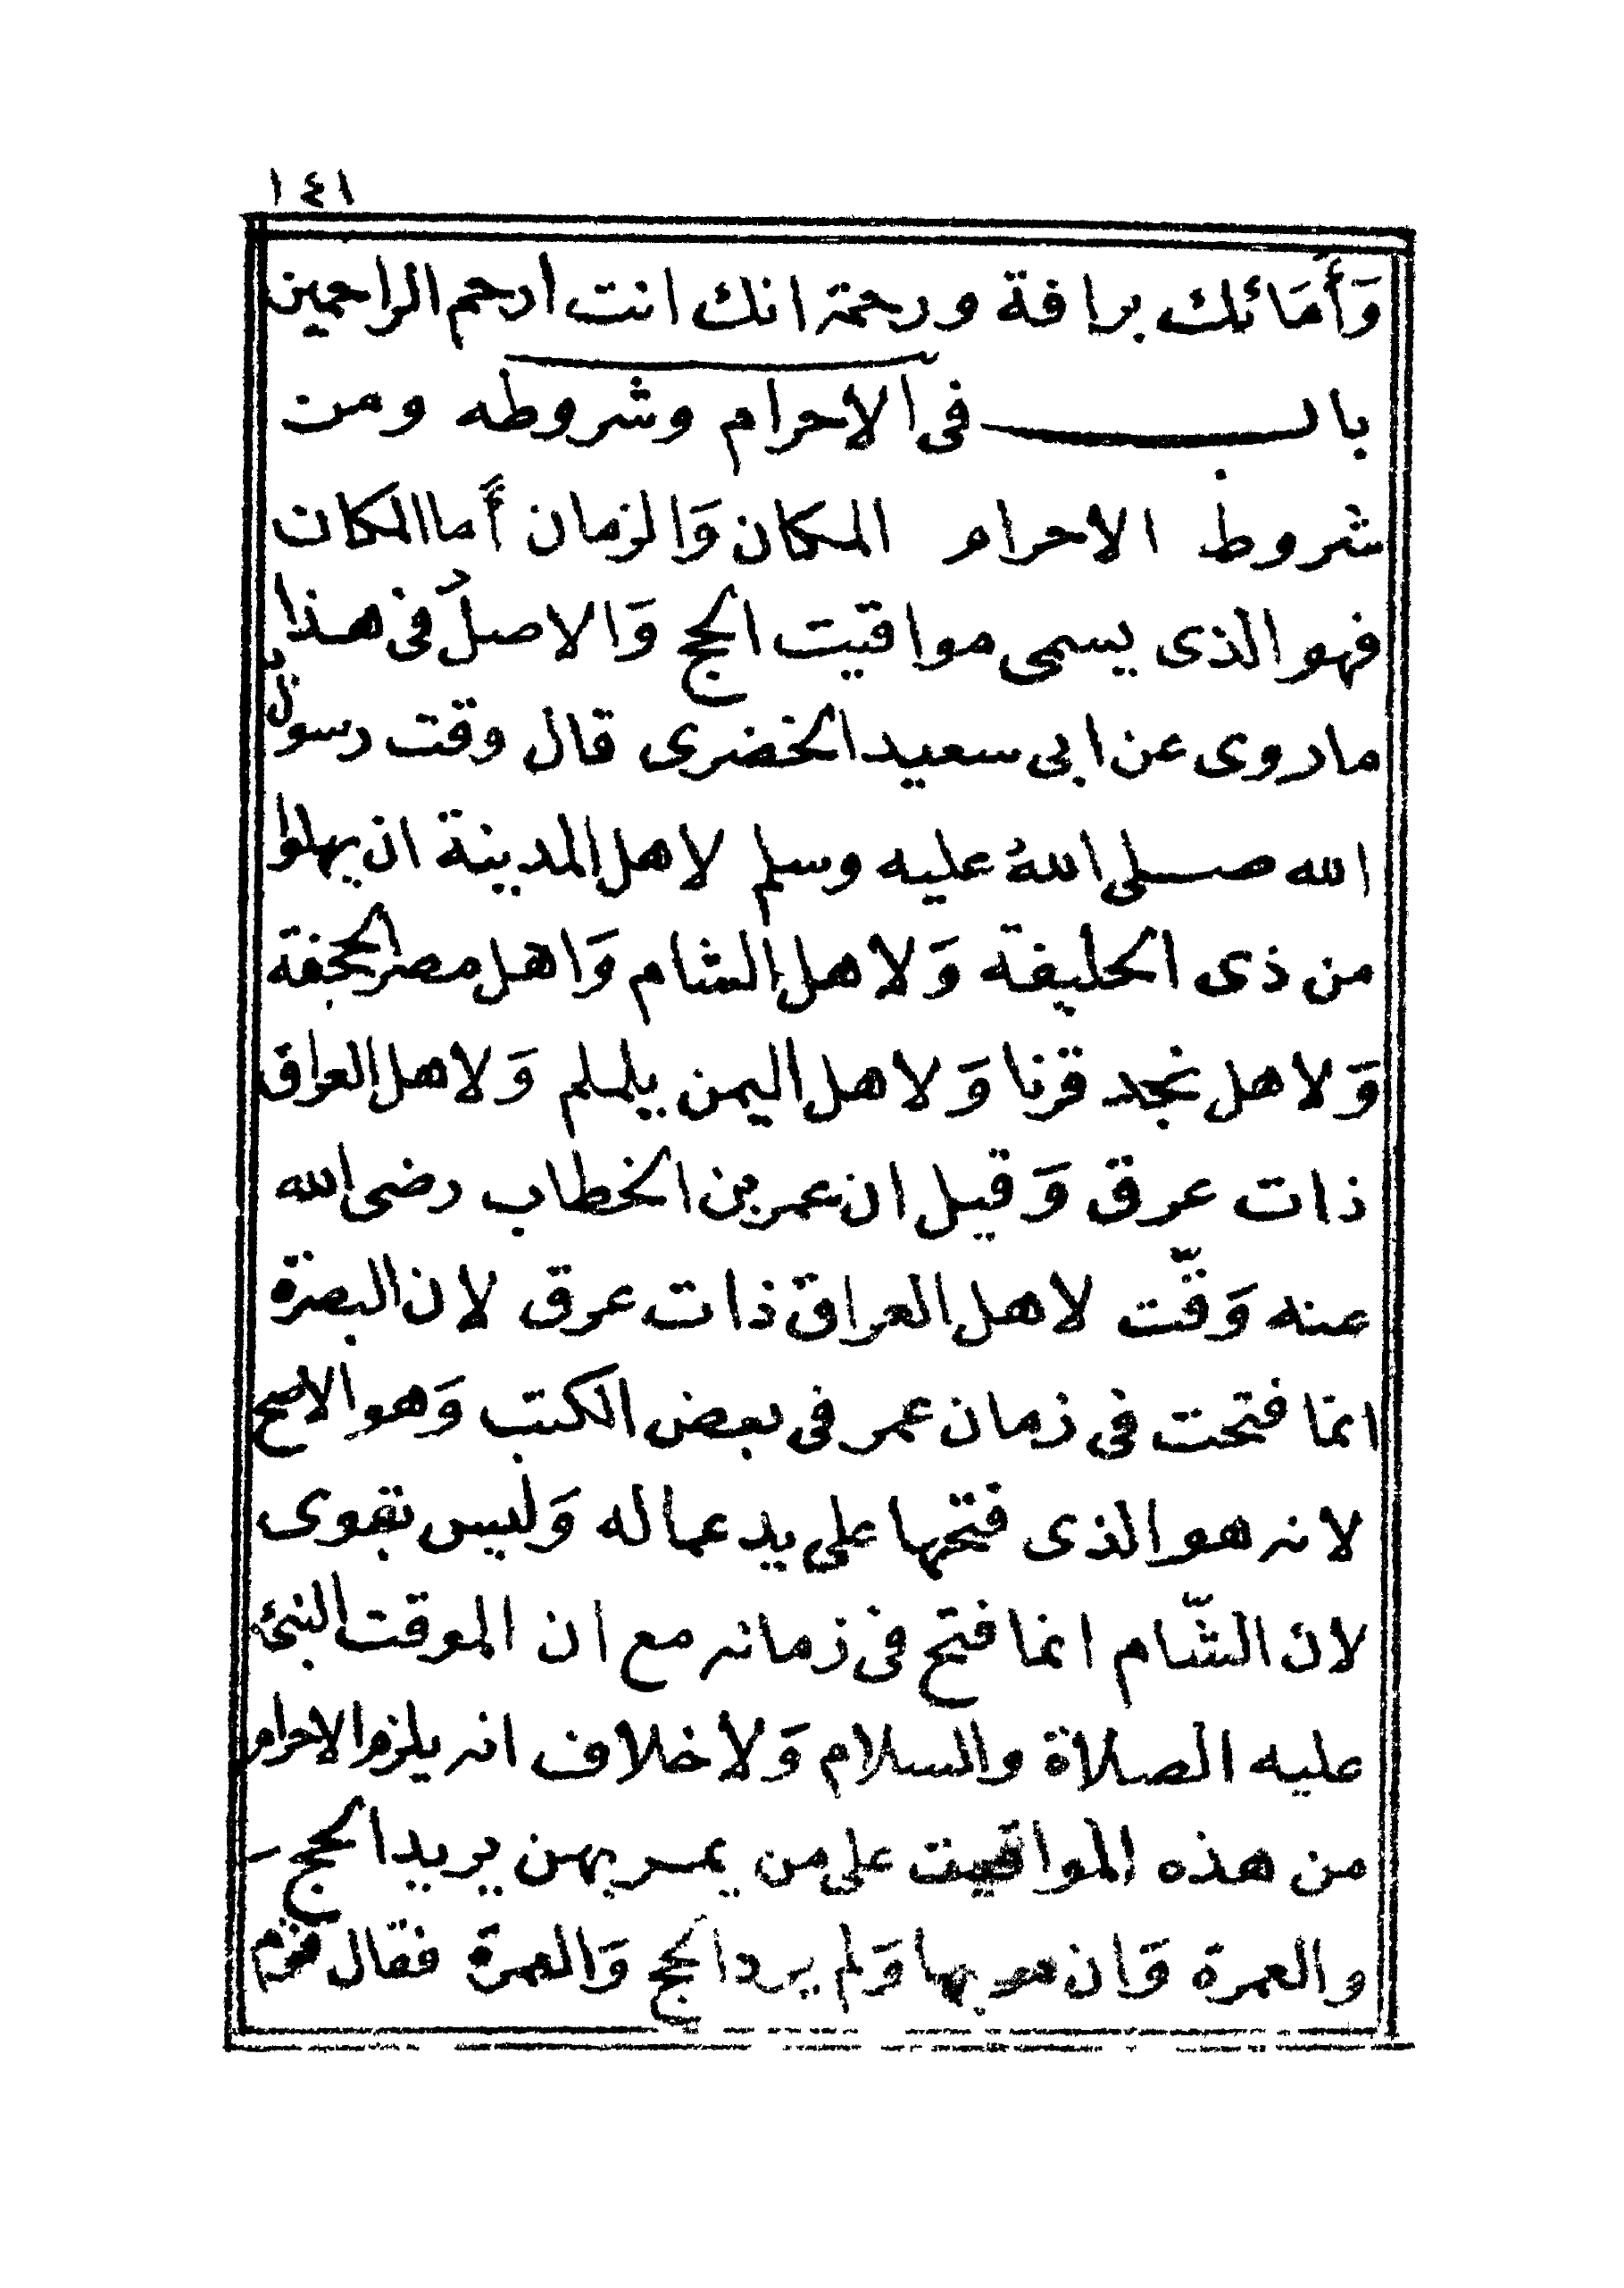 ١٤١
وَأَمَائك برافة ورحمة انك انت ارحم الراحمين
باب فى الاحرام وشروطه ومن
شروط الاحرام المكان وَالزمان أَما المكان
فهو الذى يسمى مواقيت الحج وَالاصلُ فى هذا
ما روى عن ابى سعيد الخضرى قال وقت رسول
الله صلى اللهُ عليه وسلم لاهل المدينة ان يهلوا
من ذى الحليفة وَلاهل الشام وَاهل مصر الجحفة
وَلاهل نجد قرنا وَلاهل اليمن يلملم وَلاهل العراق
ذات عرق وَقيل ان عمر بن الخطاب رضى الله
عنه وَقّت لاهل العراق ذات عرق لان البصرة
انما فتحت فى زمان عمر فى بعض الكتب وَهو الاصح
لانه هو الذى فتحها على يد عماله وَليس بقوى
لان الشّام انما فتح فى زمانه مع ان الموقت النبئ
عليه الصلاة والسلام وَلا خلاف انه يلزم الاحرام
من هذه المواقيت على من يمر بهن يريد الحج
والعمرة وَان مر بها وَلم يرد الحج وَالعمرة فقال قوم